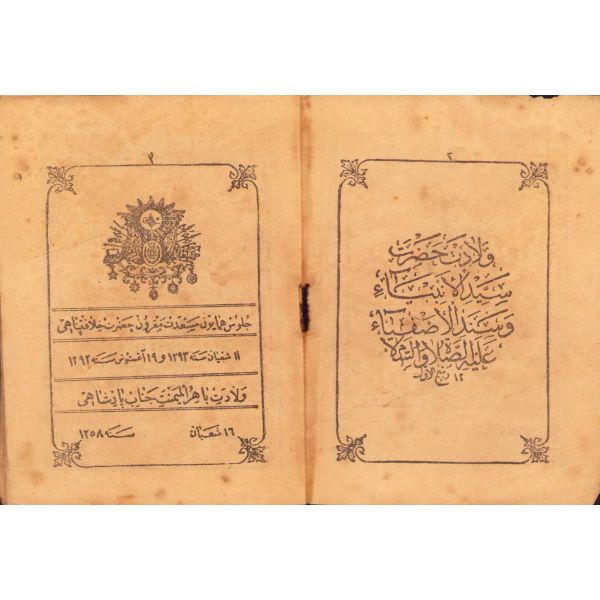 ٢
ولادت حضرت
سيد الانبياء
وسند الاصفياء
عليه الصلاة والسلام
١٢ ربيع الاول
٣
جلوس همايون ميسعدت مقرون حضرت خلافتپناهى
١١ شعبان سنه ١٢٩٣ و ١٩ اغستوس سنه ١٢٩٢
ولادت باهر الميمنت جناب پادشاهى
١٦ شعبان سنه ١٢٥٨